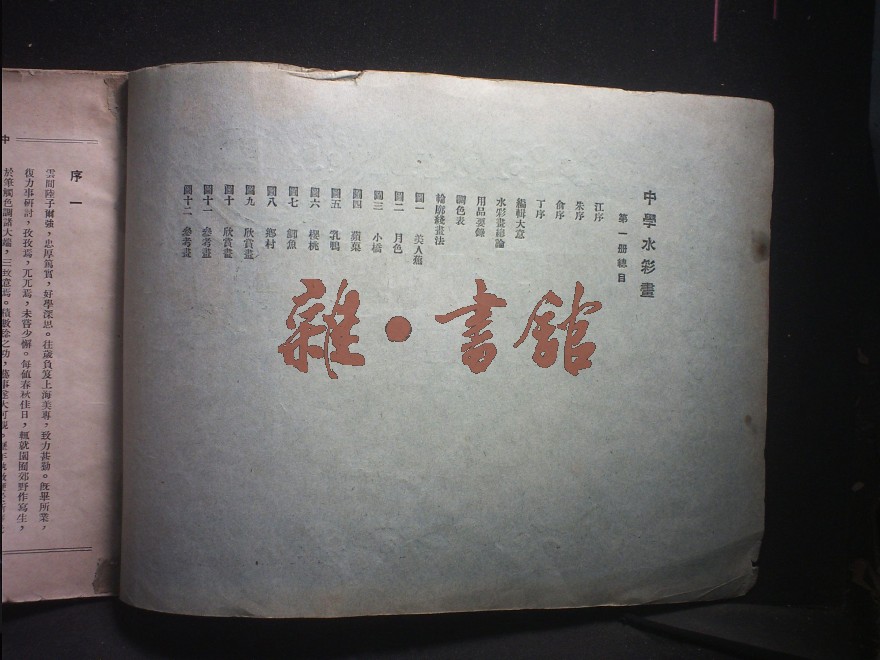 中學水彩畫
第一册總目
江序
朱序
俞序
丁序
編輯大意
水彩畫緒論
用品要錄
調色表
輪廓綫畫法
圖一 美人蕉
圖二 月色
圖三 小橋
圖四 蘋菓
圖五 乳鴨
圖六 櫻桃
圖七 鯽魚
圖八 鄉村
圖九 欣賞畫
圖十 欣賞畫
圖十一 參考畫
圖十二 參考畫
雜·書館
中
序一
雲間陸子爾強，忠厚篤實，好學深思。往歲負笈上海美專，致力甚勤。旣畢所業，
復力事研討，孜孜焉，兀兀焉，未嘗少懈。每值春秋佳日，輒就園囿郊野作寫生，
於筆觸色調諸大端，三致意焉。積數